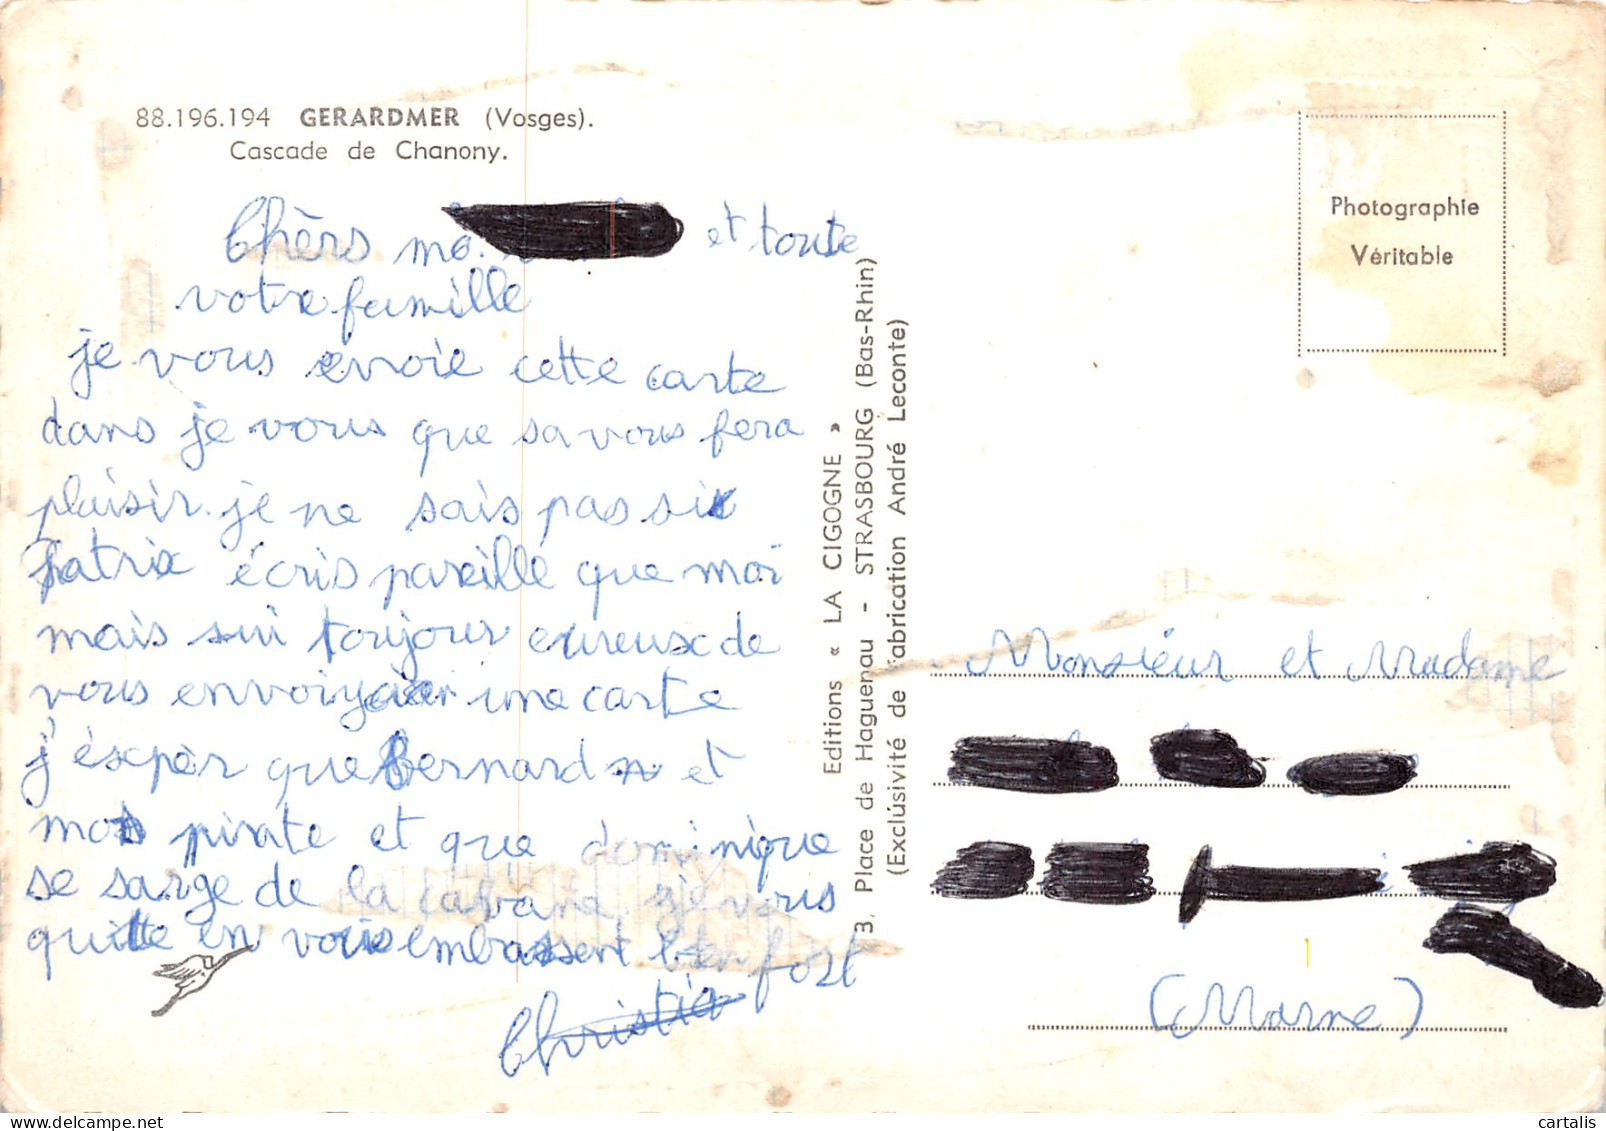 88.196.194 GERARDMER (Vosges).
Cascade de Chanony.
Chèrs et toute
votre famille
je vous envoie cette carte
dans je vous que sa vous fera
plaisir. je ne sais pas si
Patrix écris pareille que moi
mais sui toujour eureuse de
vous envoiyer une carte
j'éspèr que Bernard et
pirate et que dominique
se sarge de la cabane. je vous
quitte en vous embrassent bien fort
Christia
Editions « LA CIGOGNE »
3, Place de Haguenau - STRASBOURG (Bas-Rhin)
(Exclusivité de Fabrication André Leconte)
Photographie
Véritable
Monsieur et Madame
(Marne)
cartalis